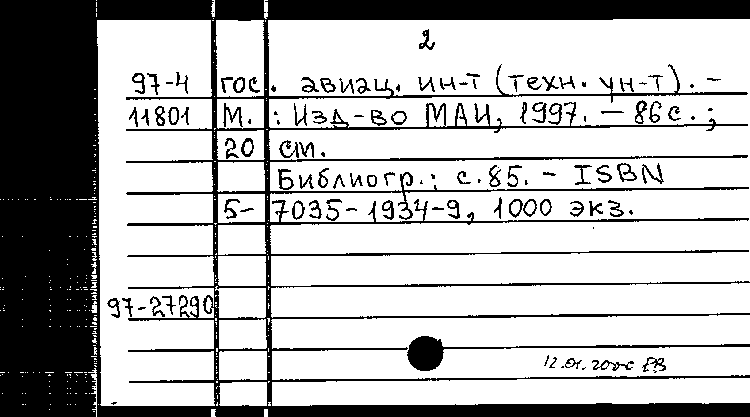 2
97-4 гос. авиац. ин-т (техн. ун-т). -
11801 М. : Изд-во МАИ, 1997. - 86 с. ;
20 см.
Библиогр.: с. 85. - ISBN
5-7035-1934-9, 1000 экз.
97-27290
12.01.